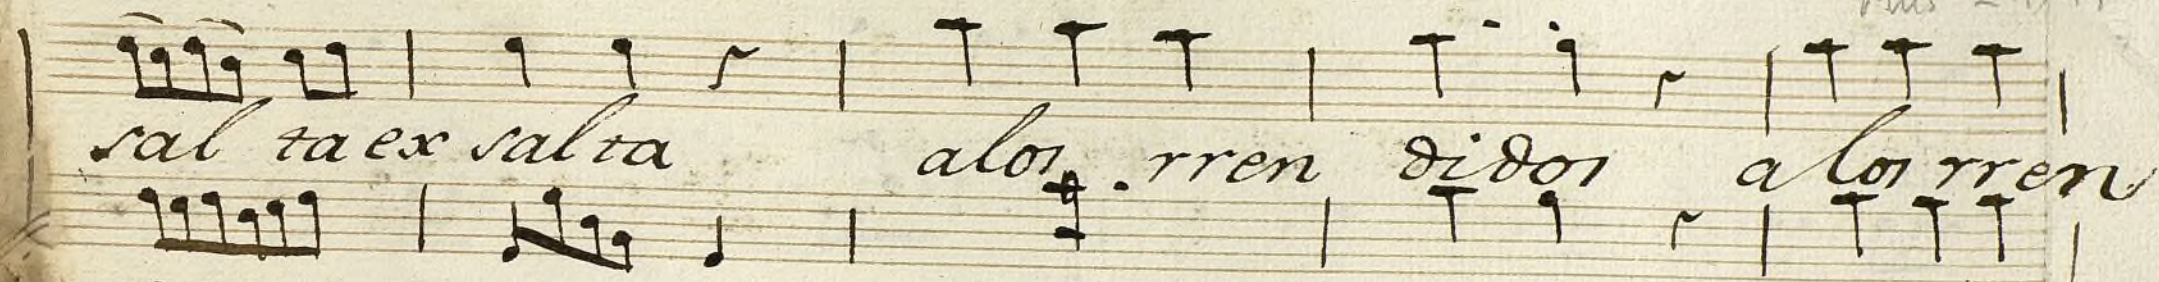 sal ta ex salta alos rren didos a los rren